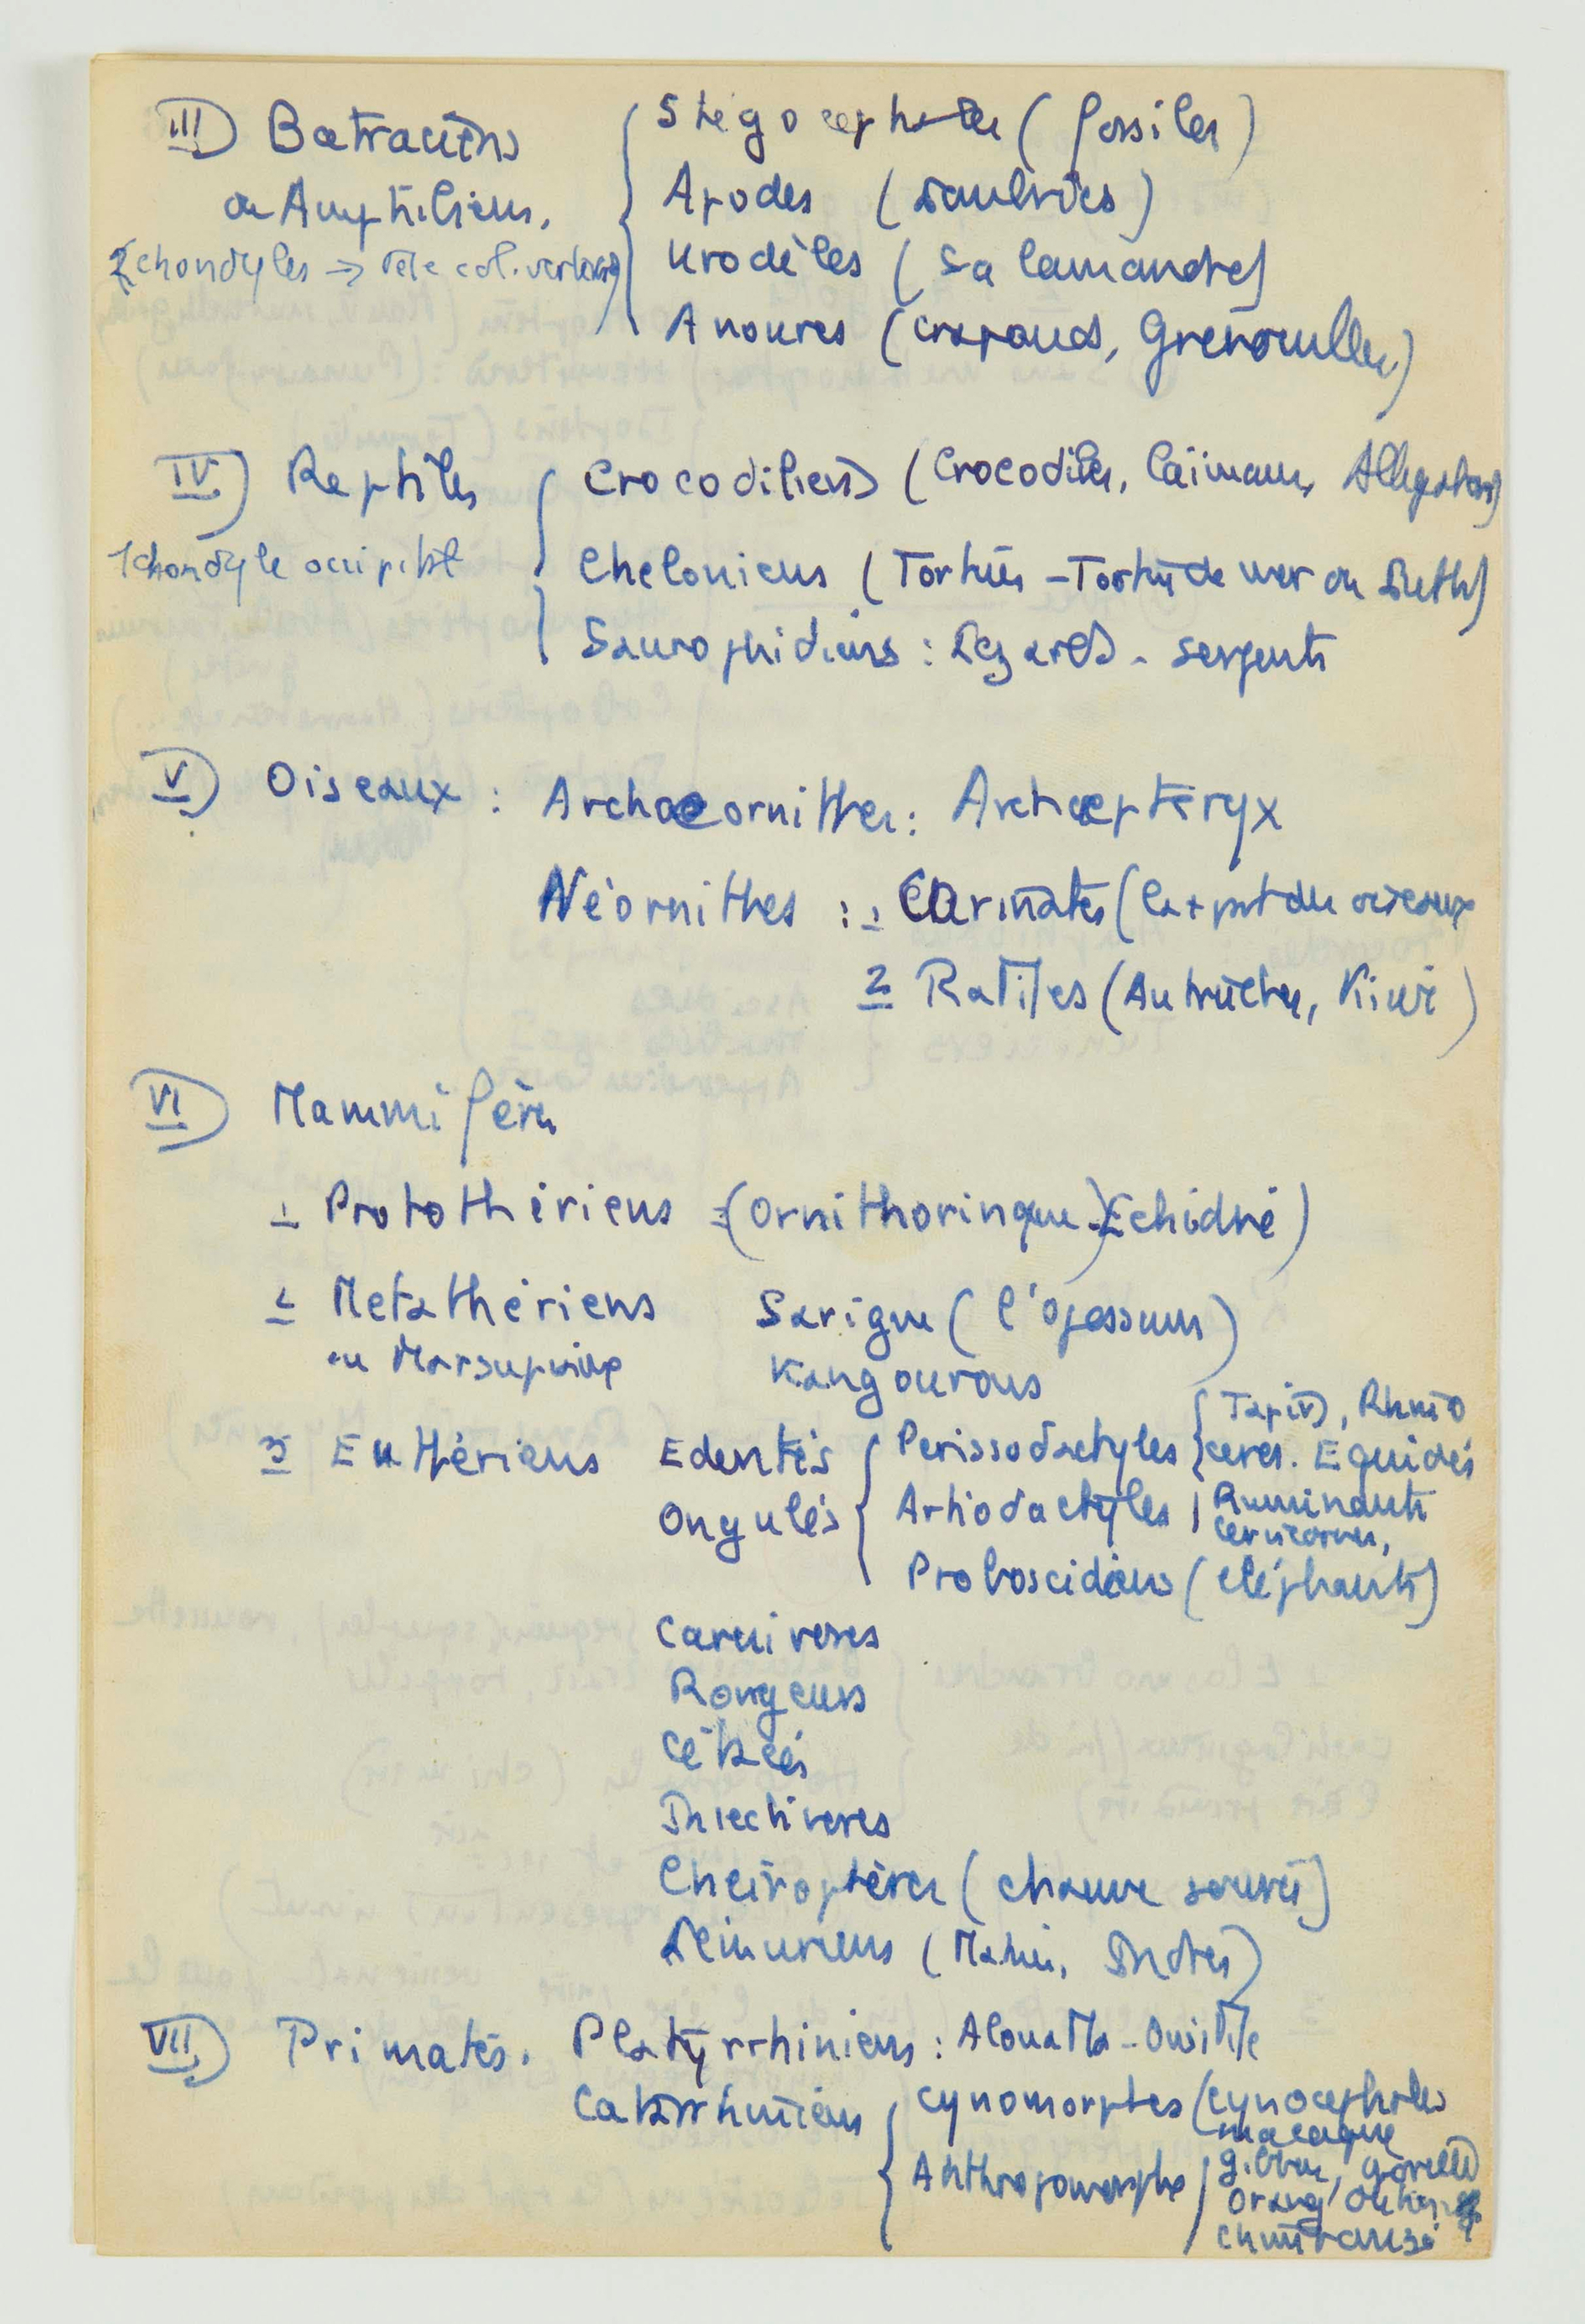 III) Batraciens { Stégocephales (fossiles)
ou Amphibiens, Apodes
2 chondyles → tête col. vertebr Urodèles (Salamandres)
Anoures (crapauds, Grenouilles)
IV) Reptiles { Crocodiliens (Crocodiles, Caïmans, Alligators)
1 chondyle occipital Cheloniens (Tortues - Tortue de mer ou Luth)
Saurophidiens : Lézards - serpents
V) Oiseaux : Archaeornithes : Archaepteryx
Néornithes : 1 Carinates (la + part des oiseaux
2 Ratites (Autruches, Kiwi)
VI) Mammifères
1 Protothériens (Ornithorinque) Echidné)
2 Metathériens Sarigue (l'opossum)
ou Marsupiaux Kangourous
3 Euthériens Edentés { Perissodactyles { Tapirs, Rhino
ceros. Equidés
Ongulés Artiodactyles | Ruminants
Proboscidiens (éléphants)
Carnivores
Rongeurs
Cétacés
Insectivores
Cheiroptères (chauve souris)
Lémuriens (Makis, Indris)
VII) Primates. Platyrrhiniens : Alouatta - Ouistiti
Catarrhiniens { Cynomorphes (cynocephales
macaque
Anthropomorphe / gibbon, gorille
Orang Outang
Chimpanzé